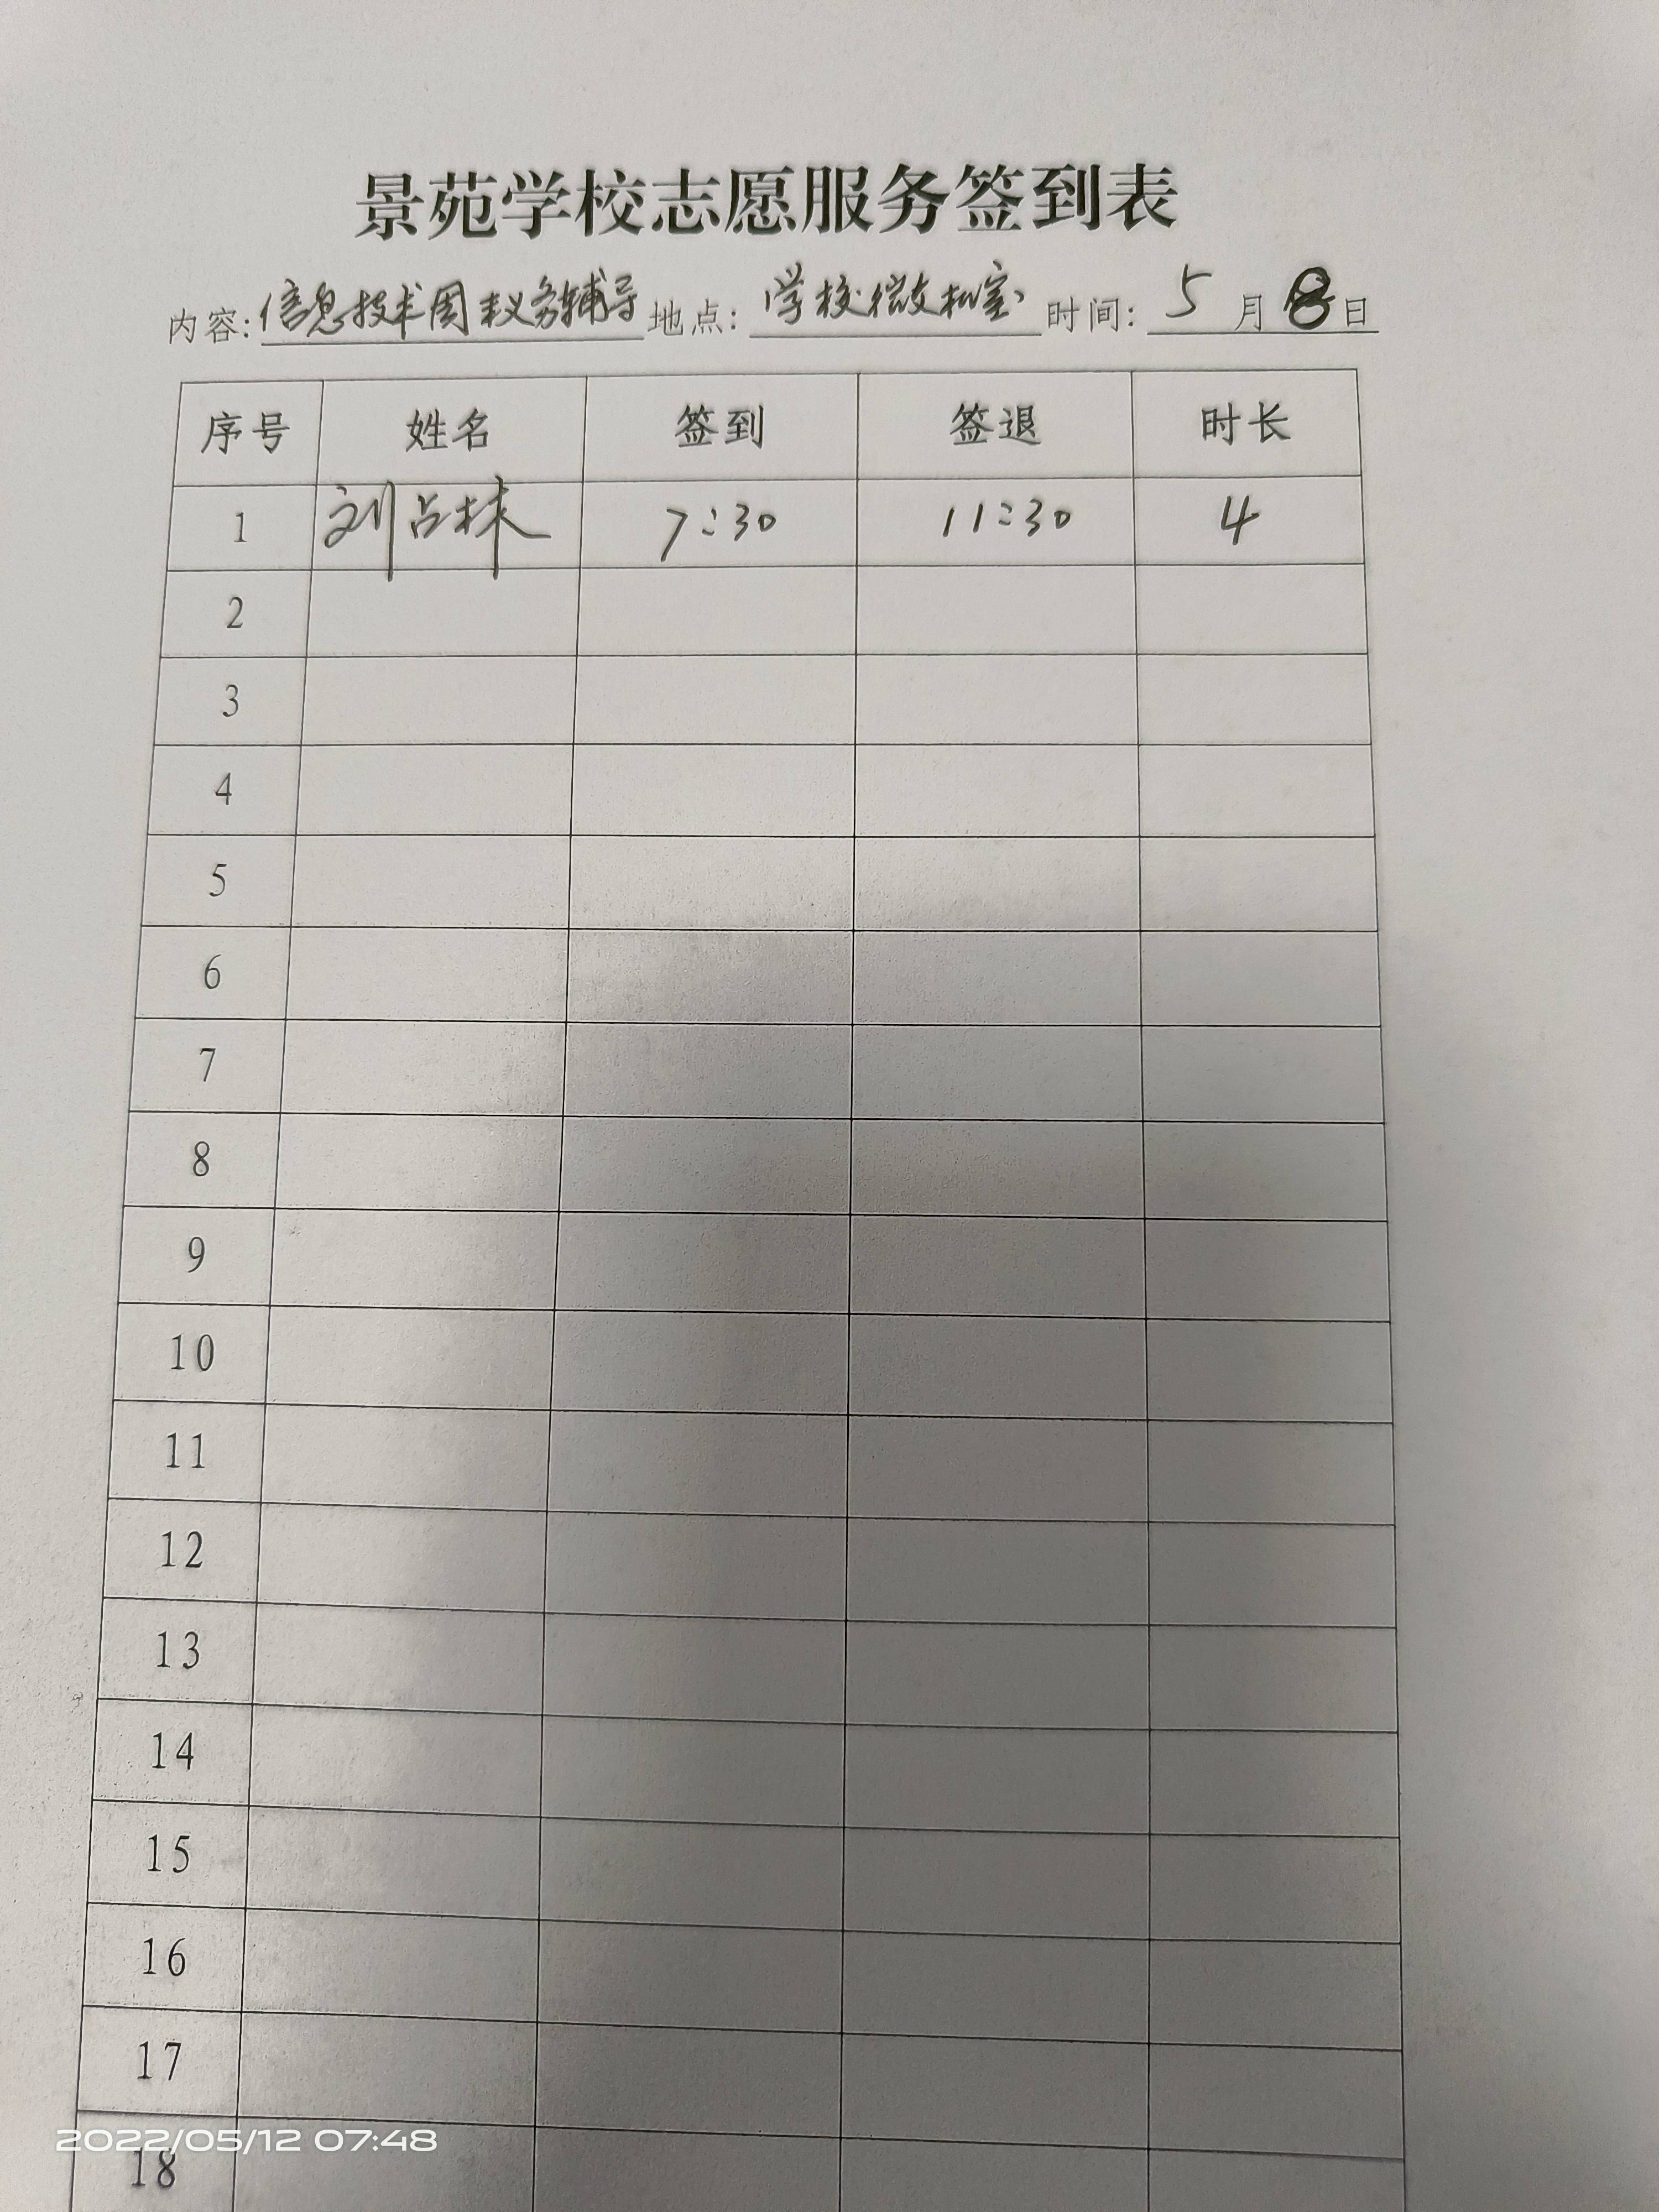 景苑学校志愿服务签到表
内容: 信息技术周末义务辅导 地点: 学校微机室 时间: 5 月 8 日
序号 姓名 签到 签退 时长
1 刘占林 7:30 11:30 4
2
3
4
5
6
7
8
9
10
11
12
13
14
15
16
17
2022/05/12 07:48
18